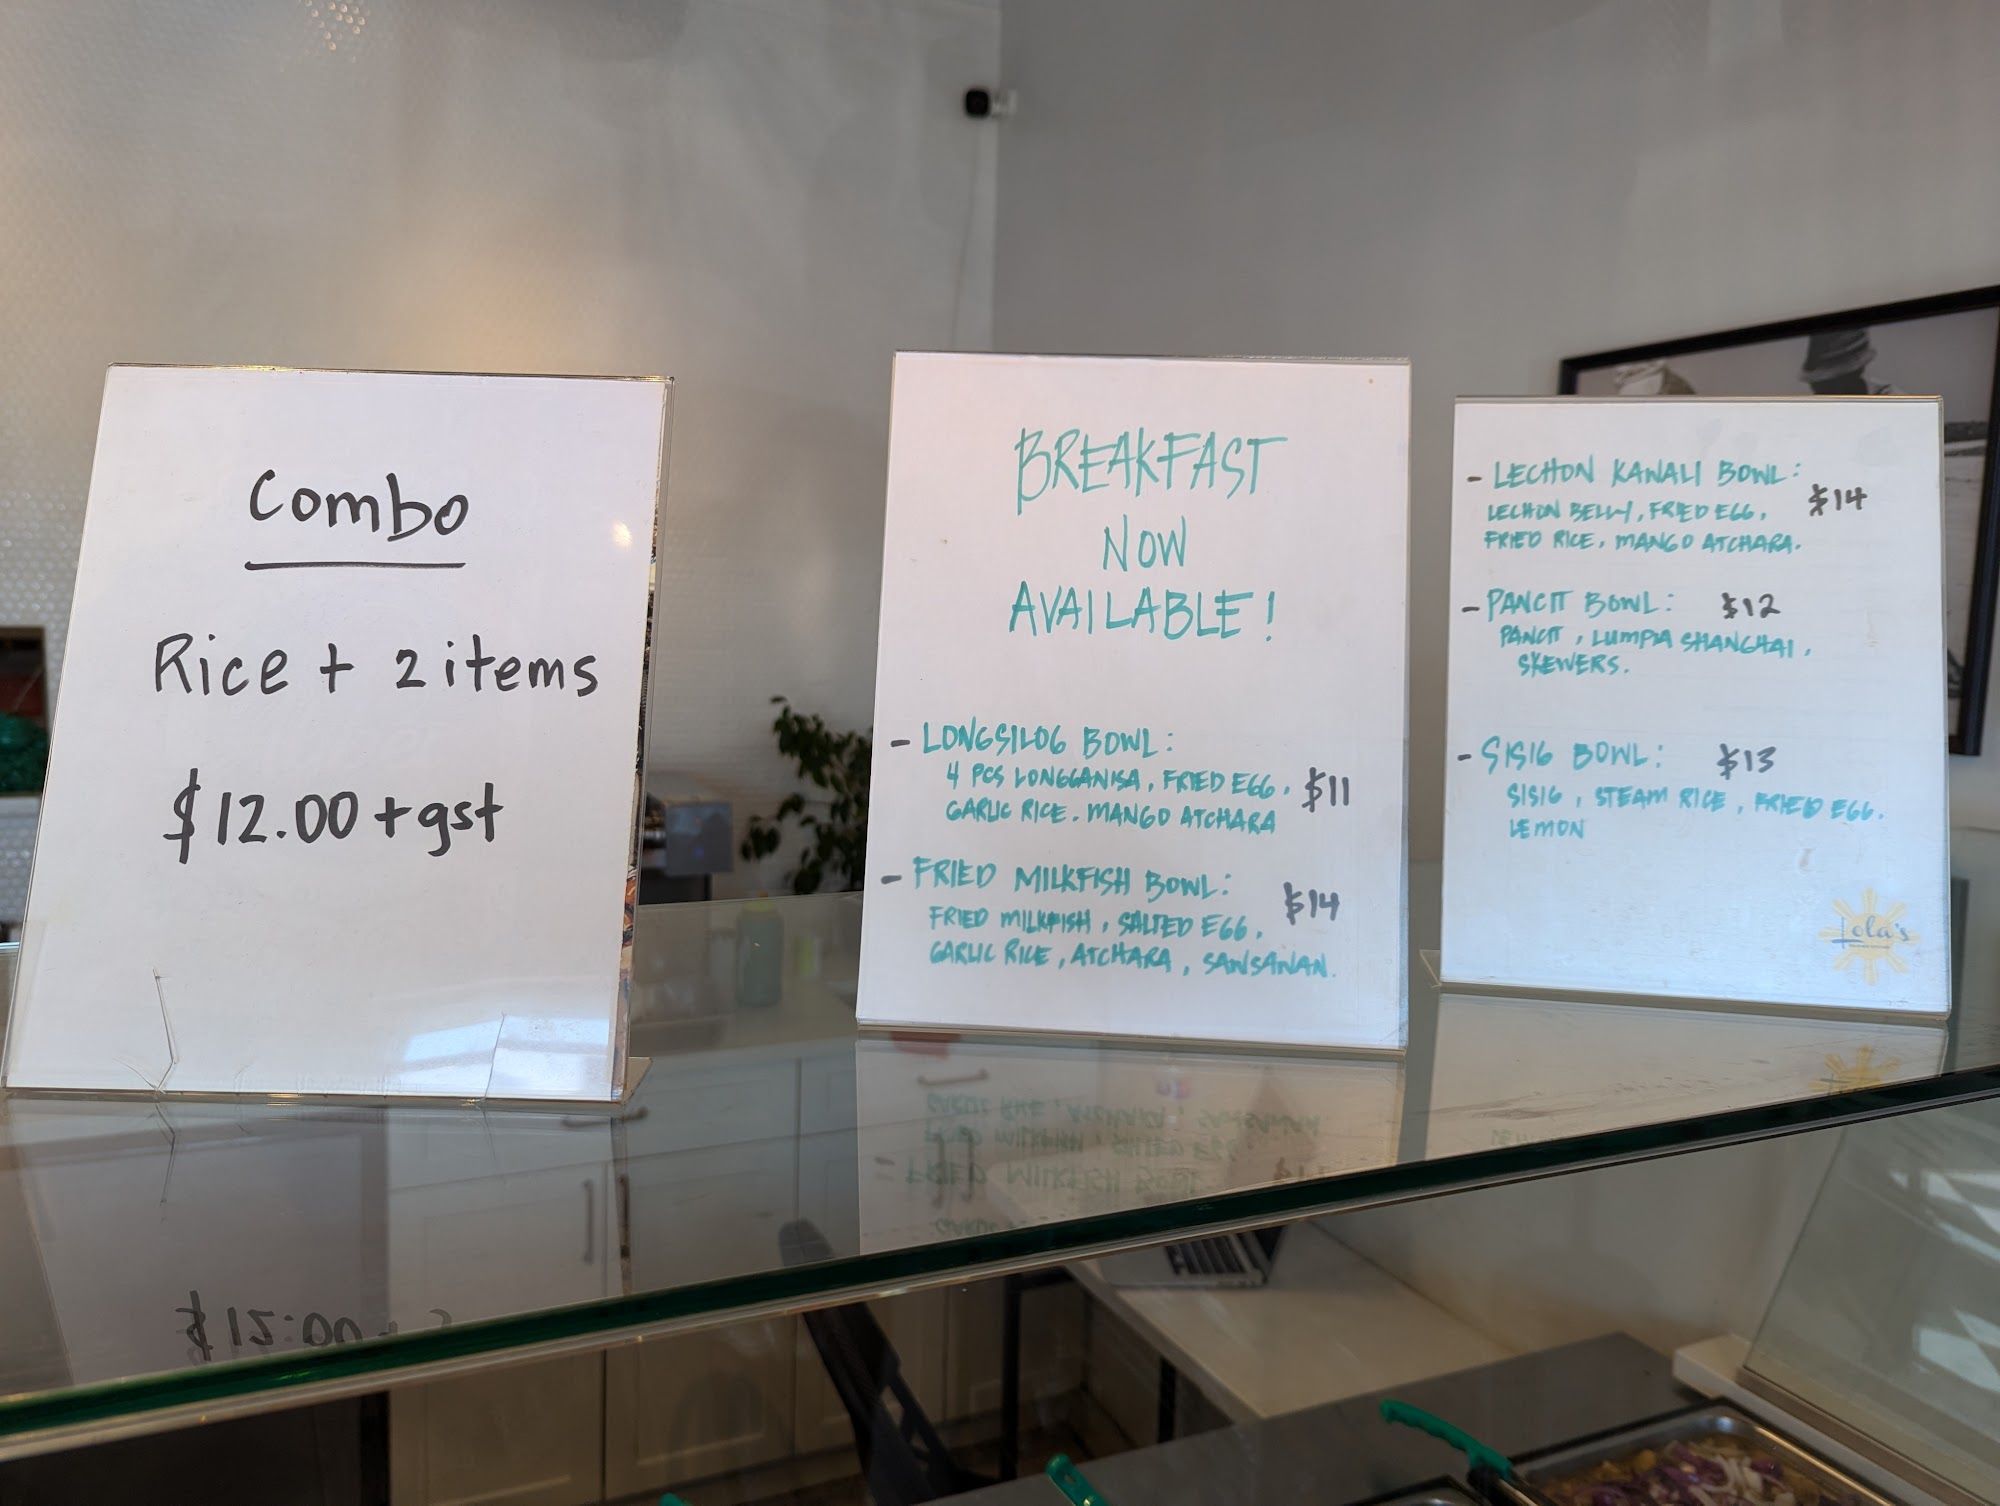 Combo
Rice + 2 items
$12.00 + gst
BREAKFAST
NOW
AVAILABLE!
- LONGSILOG BOWL:
4 PCS LONGGANISA, FRIED EGG, $11
GARLIC RICE. MANGO ATCHARA
- FRIED MILKFISH BOWL: $14
FRIED MILKFISH, SALTED EGG,
GARLIC RICE, ATCHARA, SAWSAWAN.
- LECHON KAWALI BOWL: $14
LECHON BELLY, FRIED EGG,
FRIED RICE, MANGO ATCHARA.
- PANCIT BOWL: $12
PANCIT, LUMPIA SHANGHAI,
SKEWERS.
- SISIG BOWL: $13
SISIG, STEAM RICE, FRIED EGG.
LEMON
Lola's